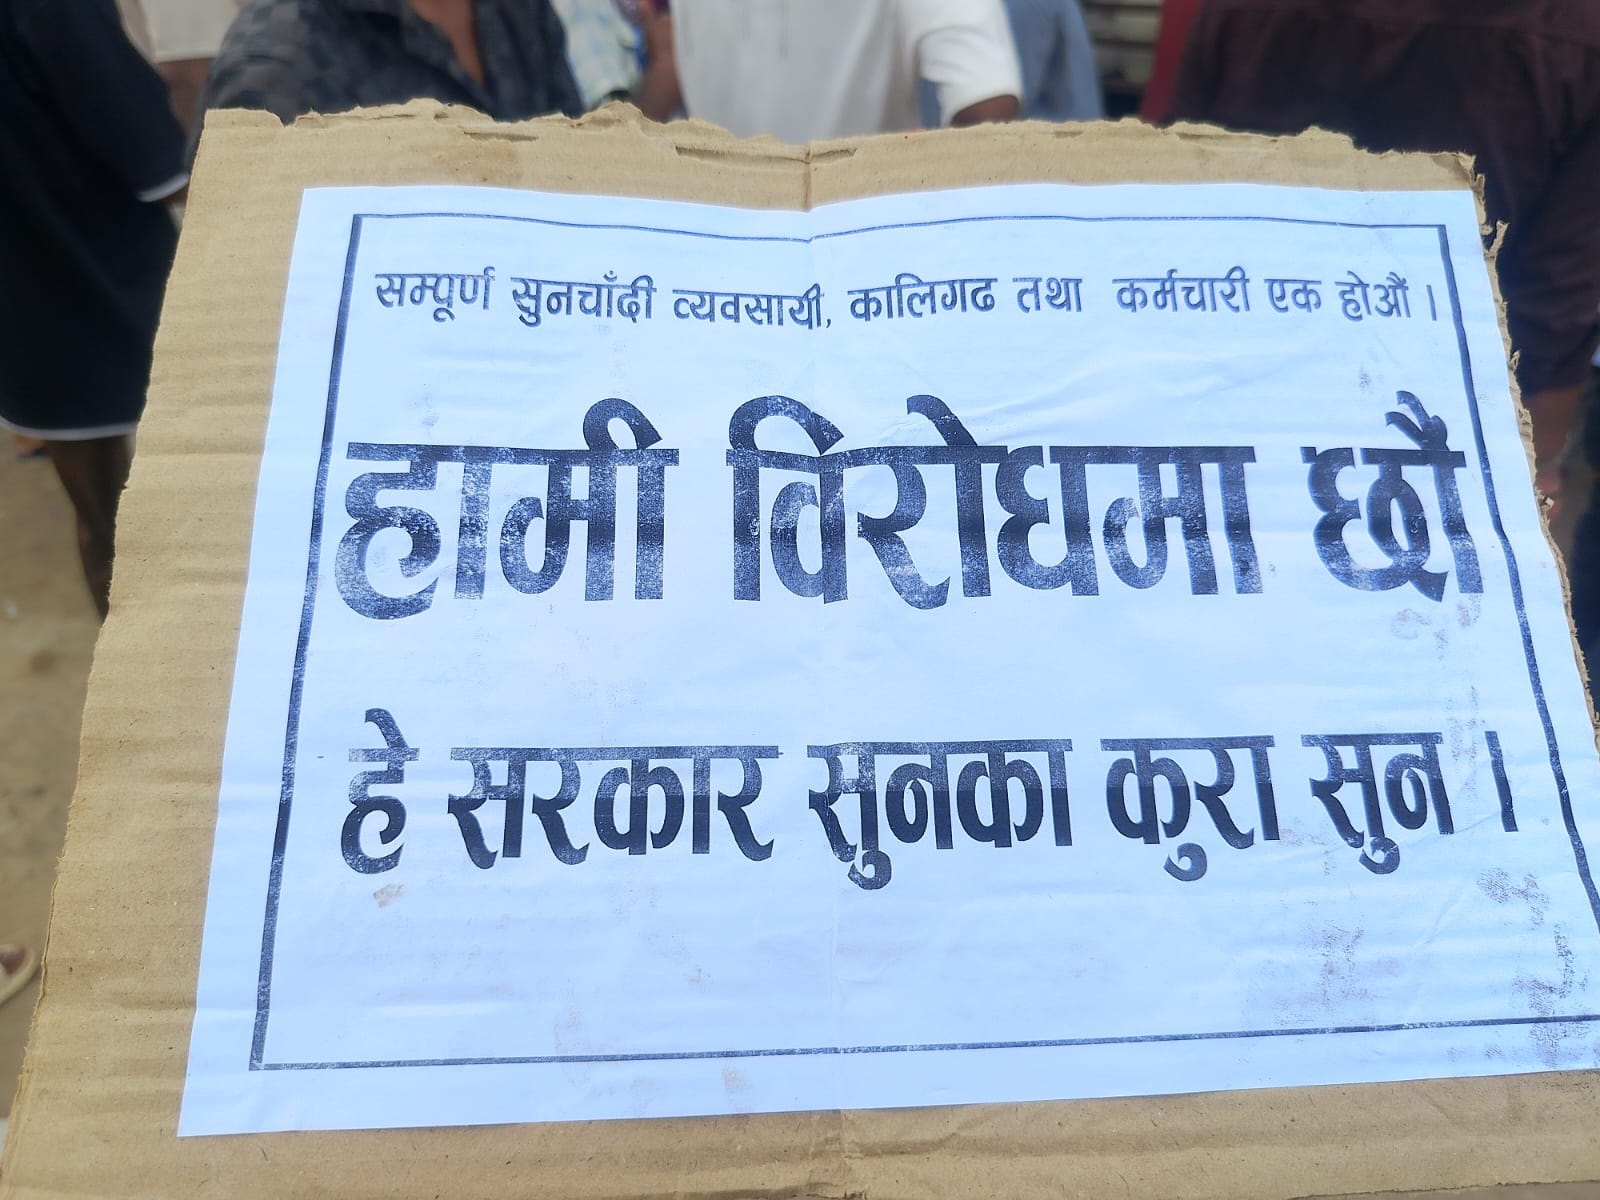 सम्पूर्ण सुनचाँदी व्यवसायी, कालिगढ तथा कर्मचारी एक होऔं ।
हामी विरोधमा छौ
हे सरकार सुनका कुरा सुन ।